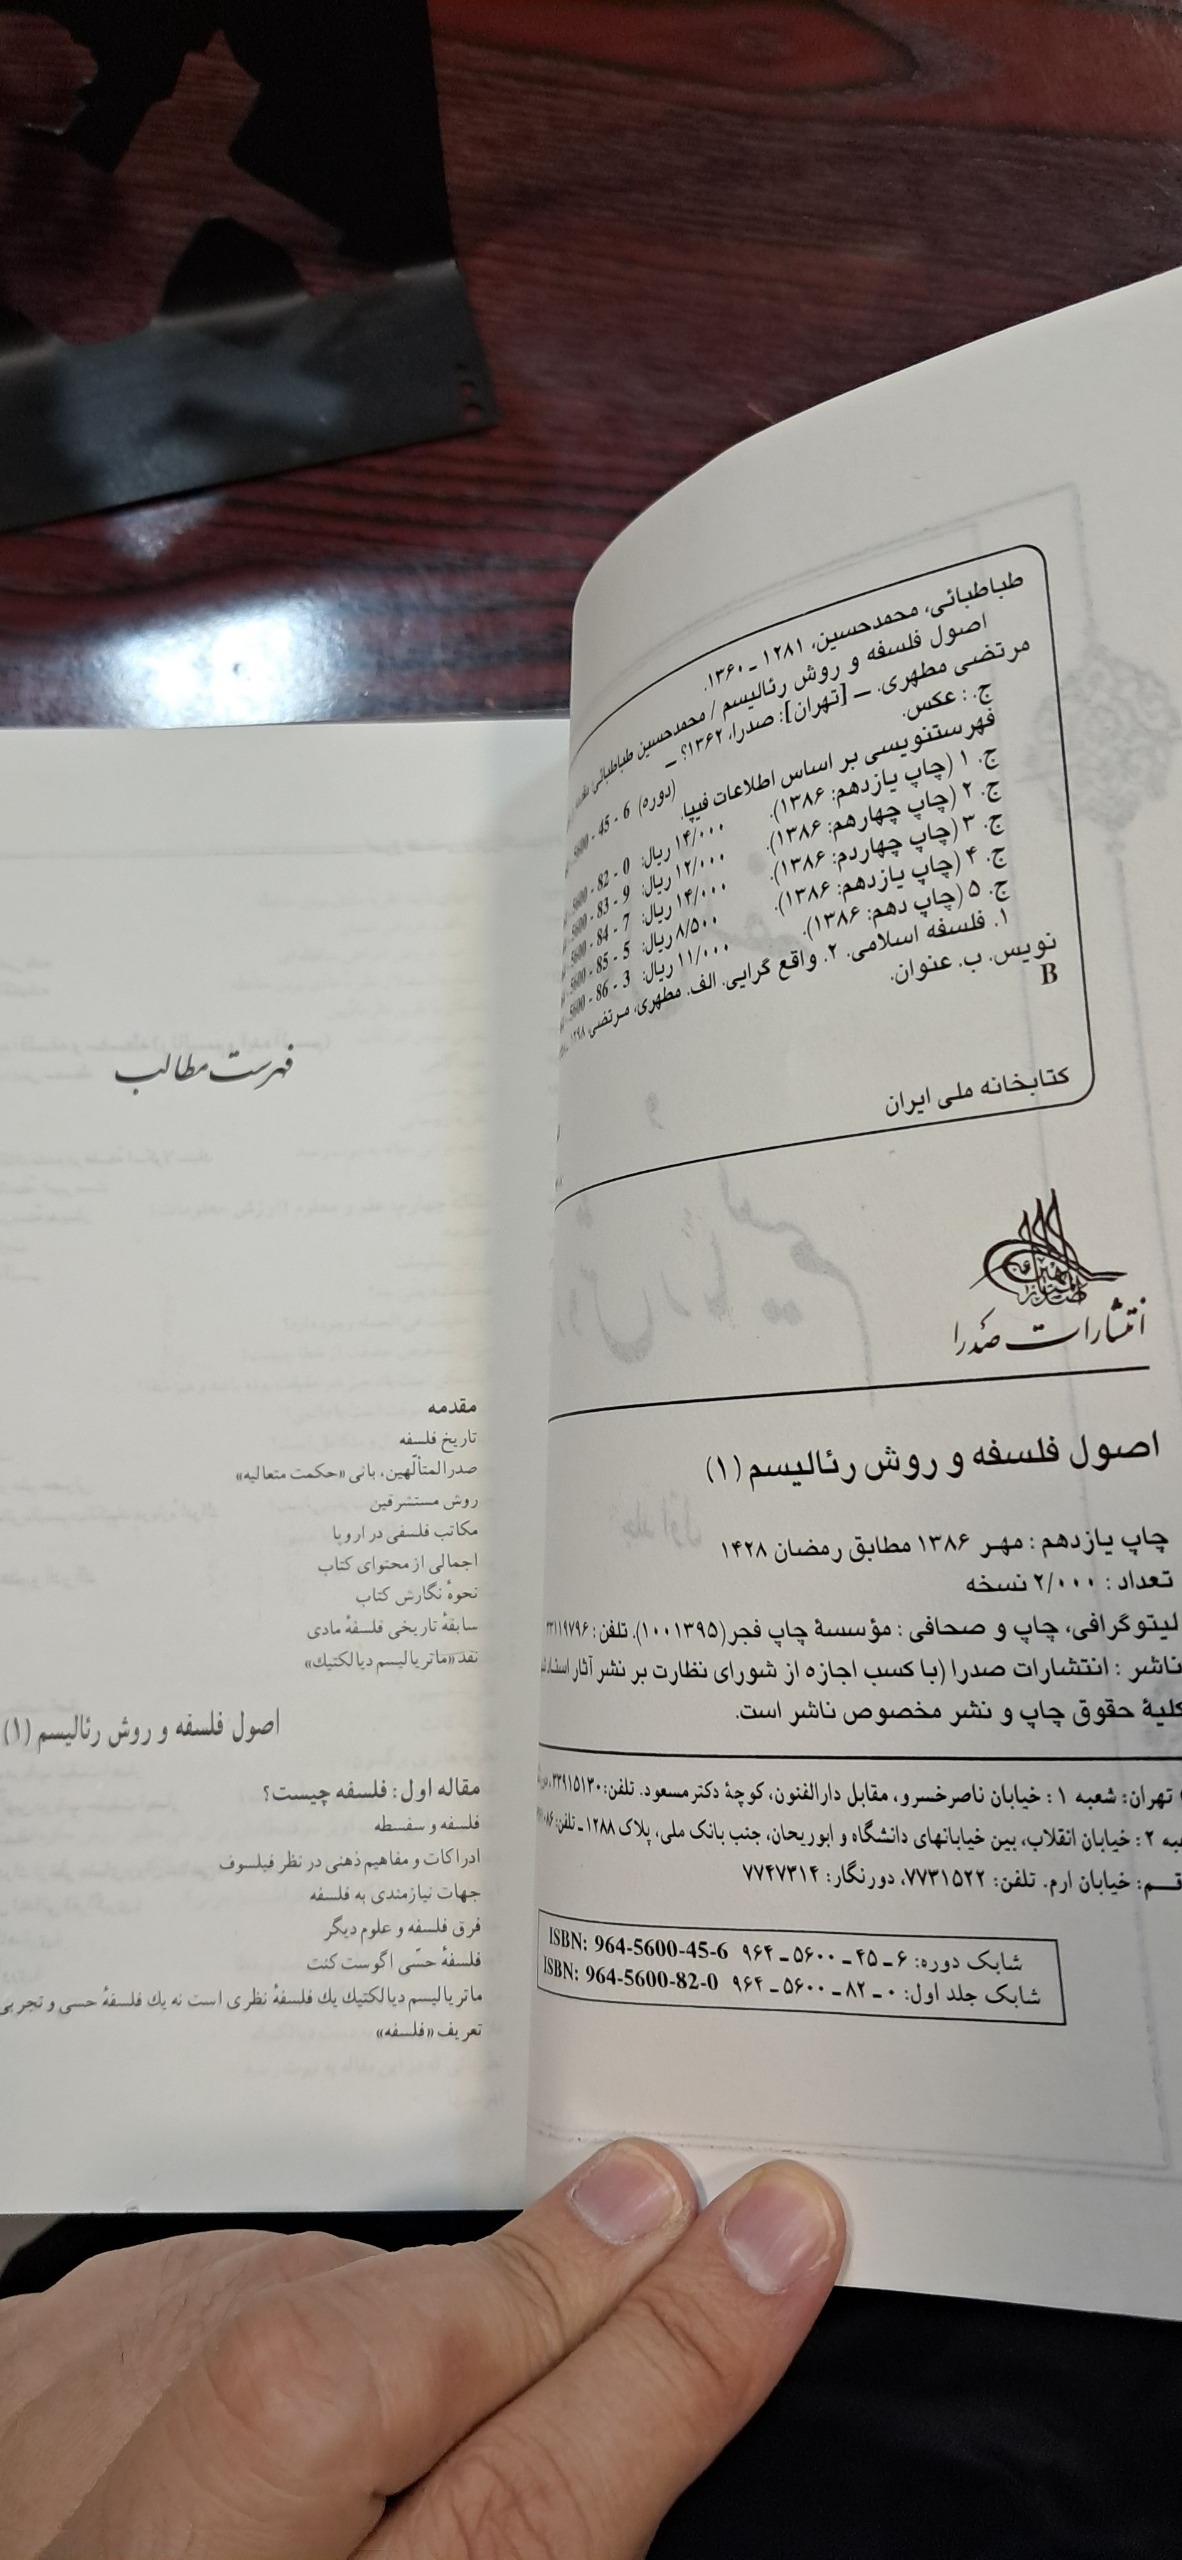 طباطبائی، محمدحسین، ۱۲۸۱ ـ ۱۳۶۰.
اصول فلسفه و روش رئالیسم / محمدحسین طباطبائی
مرتضی مطهری. ـ [تهران]: صدرا، ۱۳۶۲؟ ـ
ج. : عکس.
فهرستنویسی بر اساس اطلاعات فیپا.
5600 - 45 - 6 (دوره)
ج. ۱ (چاپ یازدهم: ۱۳۸۶). ۱۴/۰۰۰ ریال: 5600 - 82 - 0
ج. ۲ (چاپ چهارهم: ۱۳۸۶). ۱۲/۰۰۰ ریال: 5600 - 83 - 9
ج. ۳ (چاپ چهاردم: ۱۳۸۶). ۱۴/۰۰۰ ریال: 5600 - 84 - 7
ج. ۴ (چاپ یازدهم: ۱۳۸۶). ۸/۵۰۰ ریال: 5600 - 85 - 5
ج. ۵ (چاپ دهم: ۱۳۸۶). ۱۱/۰۰۰ ریال: 5600 - 86 - 3
۱. فلسفه اسلامی. ۲. واقع گرایی. الف. مطهری، مرتضی
نویس. ب. عنوان.
B
کتابخانه ملی ایران
انتشارات صدرا
اصول فلسفه و روش رئالیسم (۱)
چاپ یازدهم : مهر ۱۳۸۶ مطابق رمضان ۱۴۲۸
تعداد : ۲/۰۰۰ نسخه
لیتوگرافی، چاپ و صحافی : مؤسسۀ چاپ فجر (۱۰۰۱۳۹۵). تلفن :
ناشر : انتشارات صدرا (با کسب اجازه از شورای نظارت بر نشر آثار استاد
کلیۀ حقوق چاپ و نشر مخصوص ناشر است.
تهران: شعبه ۱ : خیابان ناصرخسرو، مقابل دارالفنون، کوچۀ دکتر مسعود. تلفن: ۳۳۹۱۵۱۳۰،
۲ : خیابان انقلاب، بین خیابانهای دانشگاه و ابوریحان، جنب بانک ملی، پلاک ۱۲۸۸ ـ تلفن:
قـم: خیابان ارم. تلفن: ۷۷۳۱۵۲۲، دورنگار: ۷۷۴۷۳۱۴
شابک دوره: ۶ ـ ۴۵ ـ ۵۶۰۰ ـ ۹۶۴ ISBN: 964-5600-45-6
شابک جلد اول: ۰ ـ ۸۲ ـ ۵۶۰۰ ـ ۹۶۴ ISBN: 964-5600-82-0
فهرست مطالب
مقدمه
تاریخ فلسفه
صدرالمتألّهین، بانی «حکمت متعالیه»
روش مستشرقین
مکاتب فلسفی در اروپا
اجمالی از محتوای کتاب
نحوۀ نگارش کتاب
سابقۀ تاریخی فلسفۀ مادی
نقد «ماتریالیسم دیالکتیک»
اصول فلسفه و روش رئالیسم (۱)
مقاله اول : فلسفه چیست؟
فلسفه و سفسطه
ادراکات و مفاهیم ذهنی در نظر فیلسوف
جهات نیازمندی به فلسفه
فرق فلسفه و علوم دیگر
فلسفۀ حسّی اگوست کنت
ماتریالیسم دیالکتیک یک فلسفۀ نظری است نه یک فلسفۀ حسی و تجربی
تعریف «فلسفه»